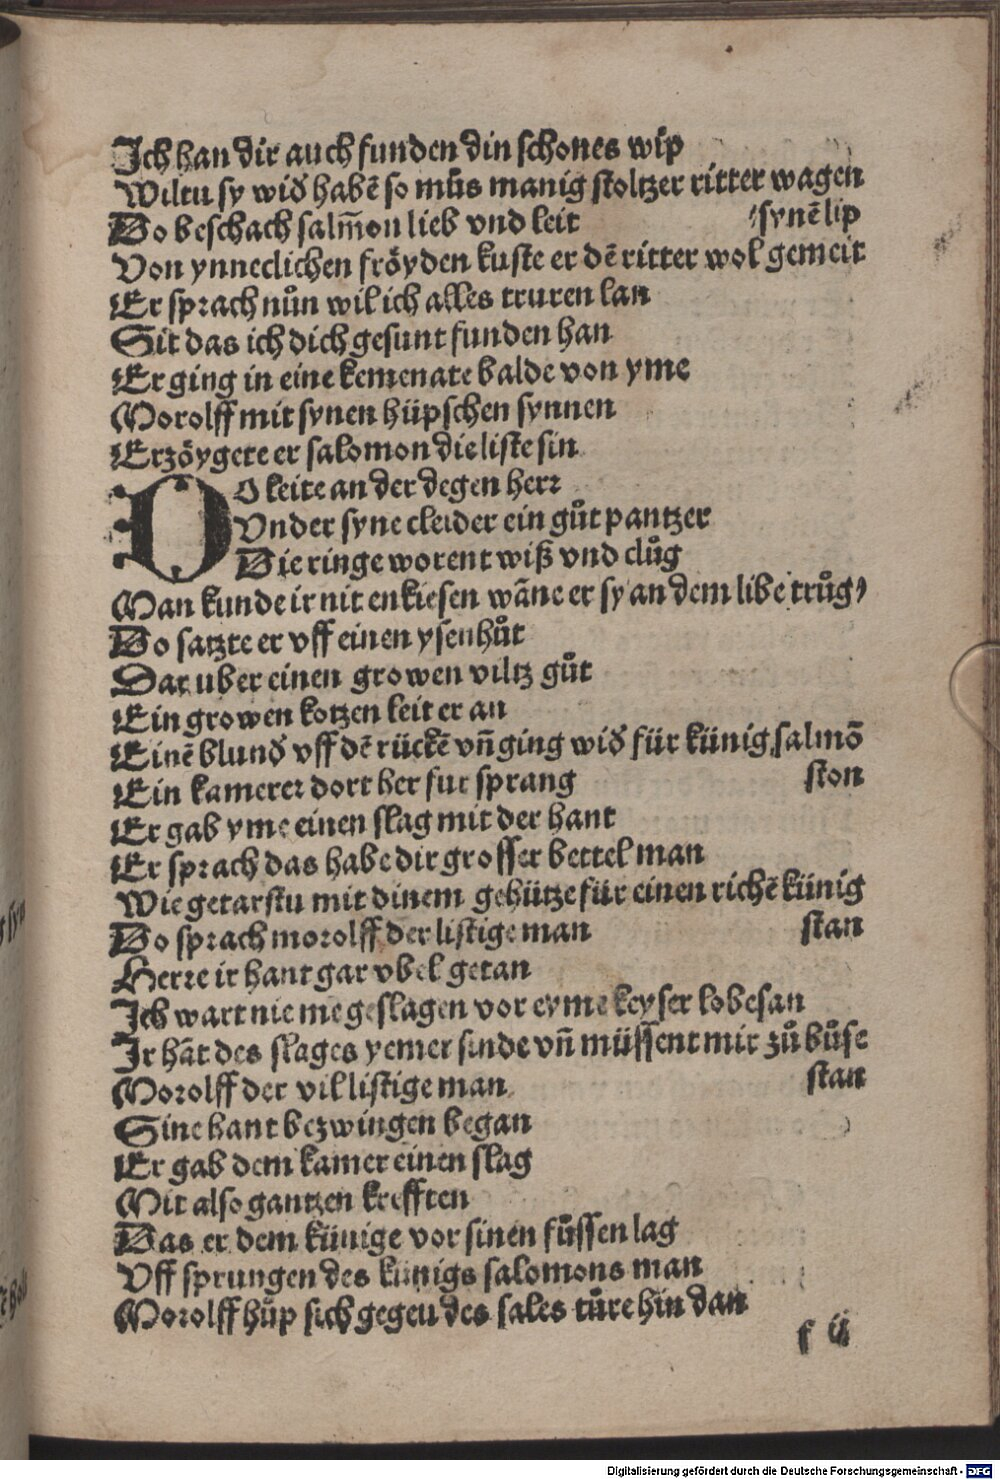 Ich han dir auch funden din schones wip
Wiltu sy wið habē so můs manig stoltzer ritter wagen
Do beschach salm̄on lieb vnd leit synē lip
Von ynneclichen fröyden kuste er dē ritter wol gemeit
Er sprach nůn wil ich alles truren lan
Sit das ich dich gesunt funden han
Er ging in eine kemenate balde von yme
Morolff mit synen hüpschen synnen
Erzöygete er salomon die liste sin
DO leite an der degen herr
Vnder syne cleider ein gůt pantzer
Die ringe worent wiß vnd clůg
Man kunde ir nit enkiesen wāne er sy an dem libe trůg
Do satzte er vff einen ysenhůt
Dar uber einen growen viltz gůt
Ein growen kotzen leit er an
Einē blunð vff dē rückē vn̄ ging wið für künig salmō
Ein kamerer dort her fur sprang ston
Er gab yme einen slag mit der hant
Er sprach das habe dir grosser bettel man
Wie getarstu mit dinem gehütze für einen richē künig
Do sprach morolff der listige man stan
Herre ir hant gar vbel getan
Ich wart nie me geslagen vor eyme keyser lobesan
Ir hāt des slages yemer sinde vn̄ müssent mir zů bůse
Morolff der vil listige man stan
Sine hant bezwingen began
Er gab dem kamer einen slag
Mit also gantzen krefften
Das er dem künige vor sinen fůssen lag
Vff sprungen des kunigs salomons man
Morolff hůp sich gegen des sales tůre hin dan
f ij
Digitalisierung gefördert durch die Deutsche Forschungsgemeinschaft - DFG